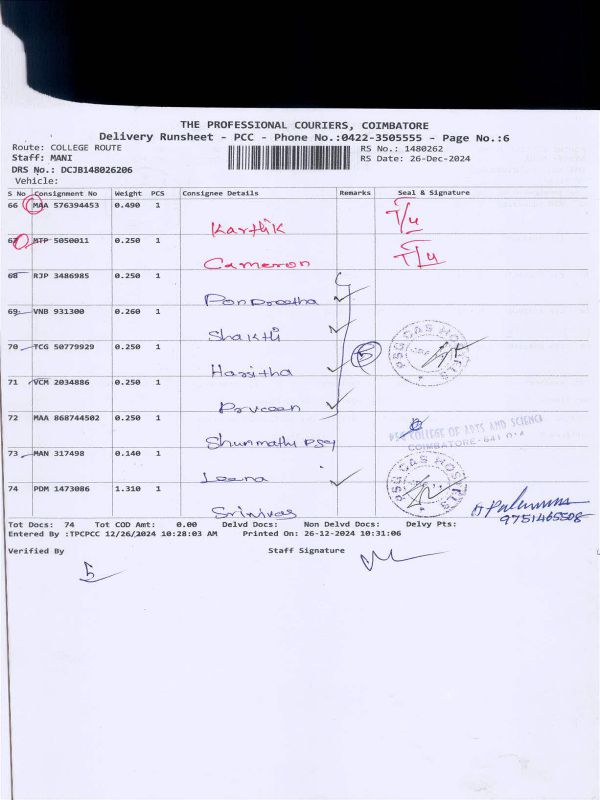 THE PROFESSIONAL COURIERS, COIMBATORE
Delivery Runsheet - PCC - Phone No.:0422-3505555 - Page No.:6
Route: COLLEGE ROUTE RS No.: 1480262
Staff: MANI RS Date: 26-Dec-2024
DRS No.: DCJB148026206
Vehicle:
S No Consignment No Weight PCS Consignee Details Remarks Seal & Signature
66 MAA 576394453 0.490 1
Karthik
67 MTP 5050011 0.250 1
Cameron
68 RJP 3486985 0.250 1
69 VNB 931300 0.260 1
Shakthi
70 TCG 50779929 0.250 1 5
Harsitha
71 VCM 2034886 0.250 1
Praveen
72 MAA 868744502 0.250 1
PSG COLLEGE OF ARTS AND SCIENCE
COIMBATORE-641 014
Shunmathi PSG
73 MAN 317498 0.140 1
Leena
PSG CAS HOSTELS
74 PDM 1473086 1.310 1
Srinivas
9751465508
Tot Docs: 74 Tot COD Amt: 0.00 Delvd Docs: Non Delvd Docs: Delvy Pts:
Entered By :TPCPCC 12/26/2024 10:28:03 AM Printed On: 26-12-2024 10:31:06
Verified By Staff Signature